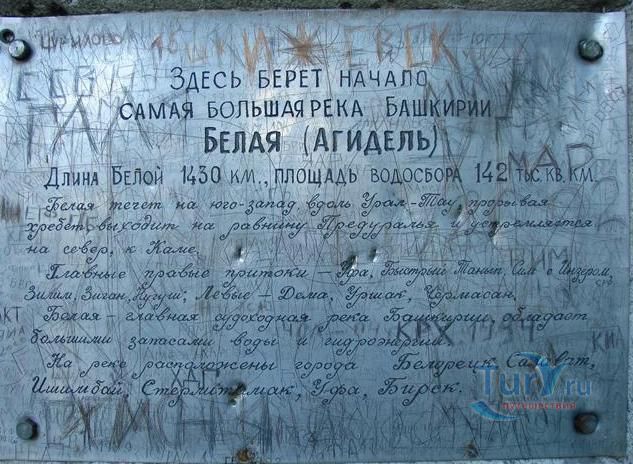 ЗДЕСЬ БЕРЕТ НАЧАЛО
САМАЯ БОЛЬШАЯ РЕКА БАШКИРИИ
БЕЛАЯ (АГИДЕЛЬ)
ДЛИНА БЕЛОЙ 1430 КМ., ПЛОЩАДЬ ВОДОСБОРА 142 ТЫС. КВ. КМ.
Белая течет на юго-запад вдоль Урал-Тау, прорывая
хребет, выходит на равнину Предуралья и устремляется
на север, к Каме.
Главные правые притоки – Уфа, Быстрый Танып, Сим с Инзером,
Зилим, Зиган, Нугуш; Левые – Дема, Уршак, Чермасан.
Белая – главная судоходная река Башкирии, обладает
большими запасами воды и гидроэнергии.
На реке расположены города Белорецк, Салават,
Ишимбай, Стерлитамак, Уфа, Бирск.
ИЖЕВСК
МАР
КРХ
TurY.ru
путешествия